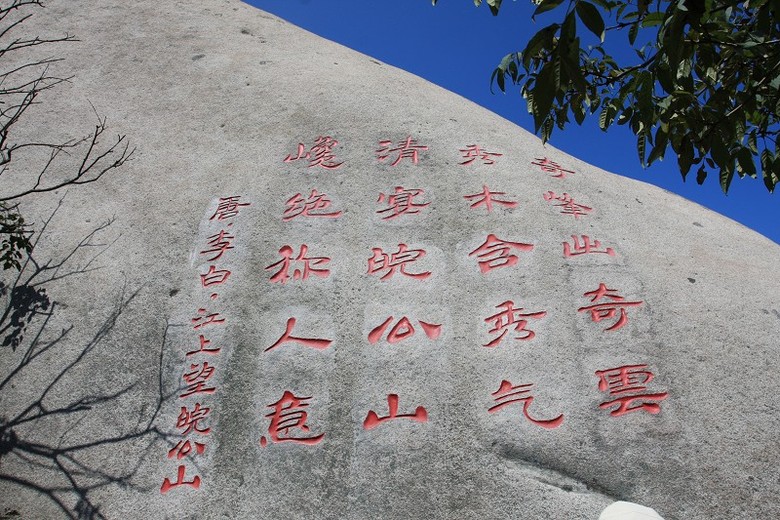 奇峰出奇雲
秀木含秀气
清宴皖公山
巉绝称人意
唐·李白·江上望皖公山